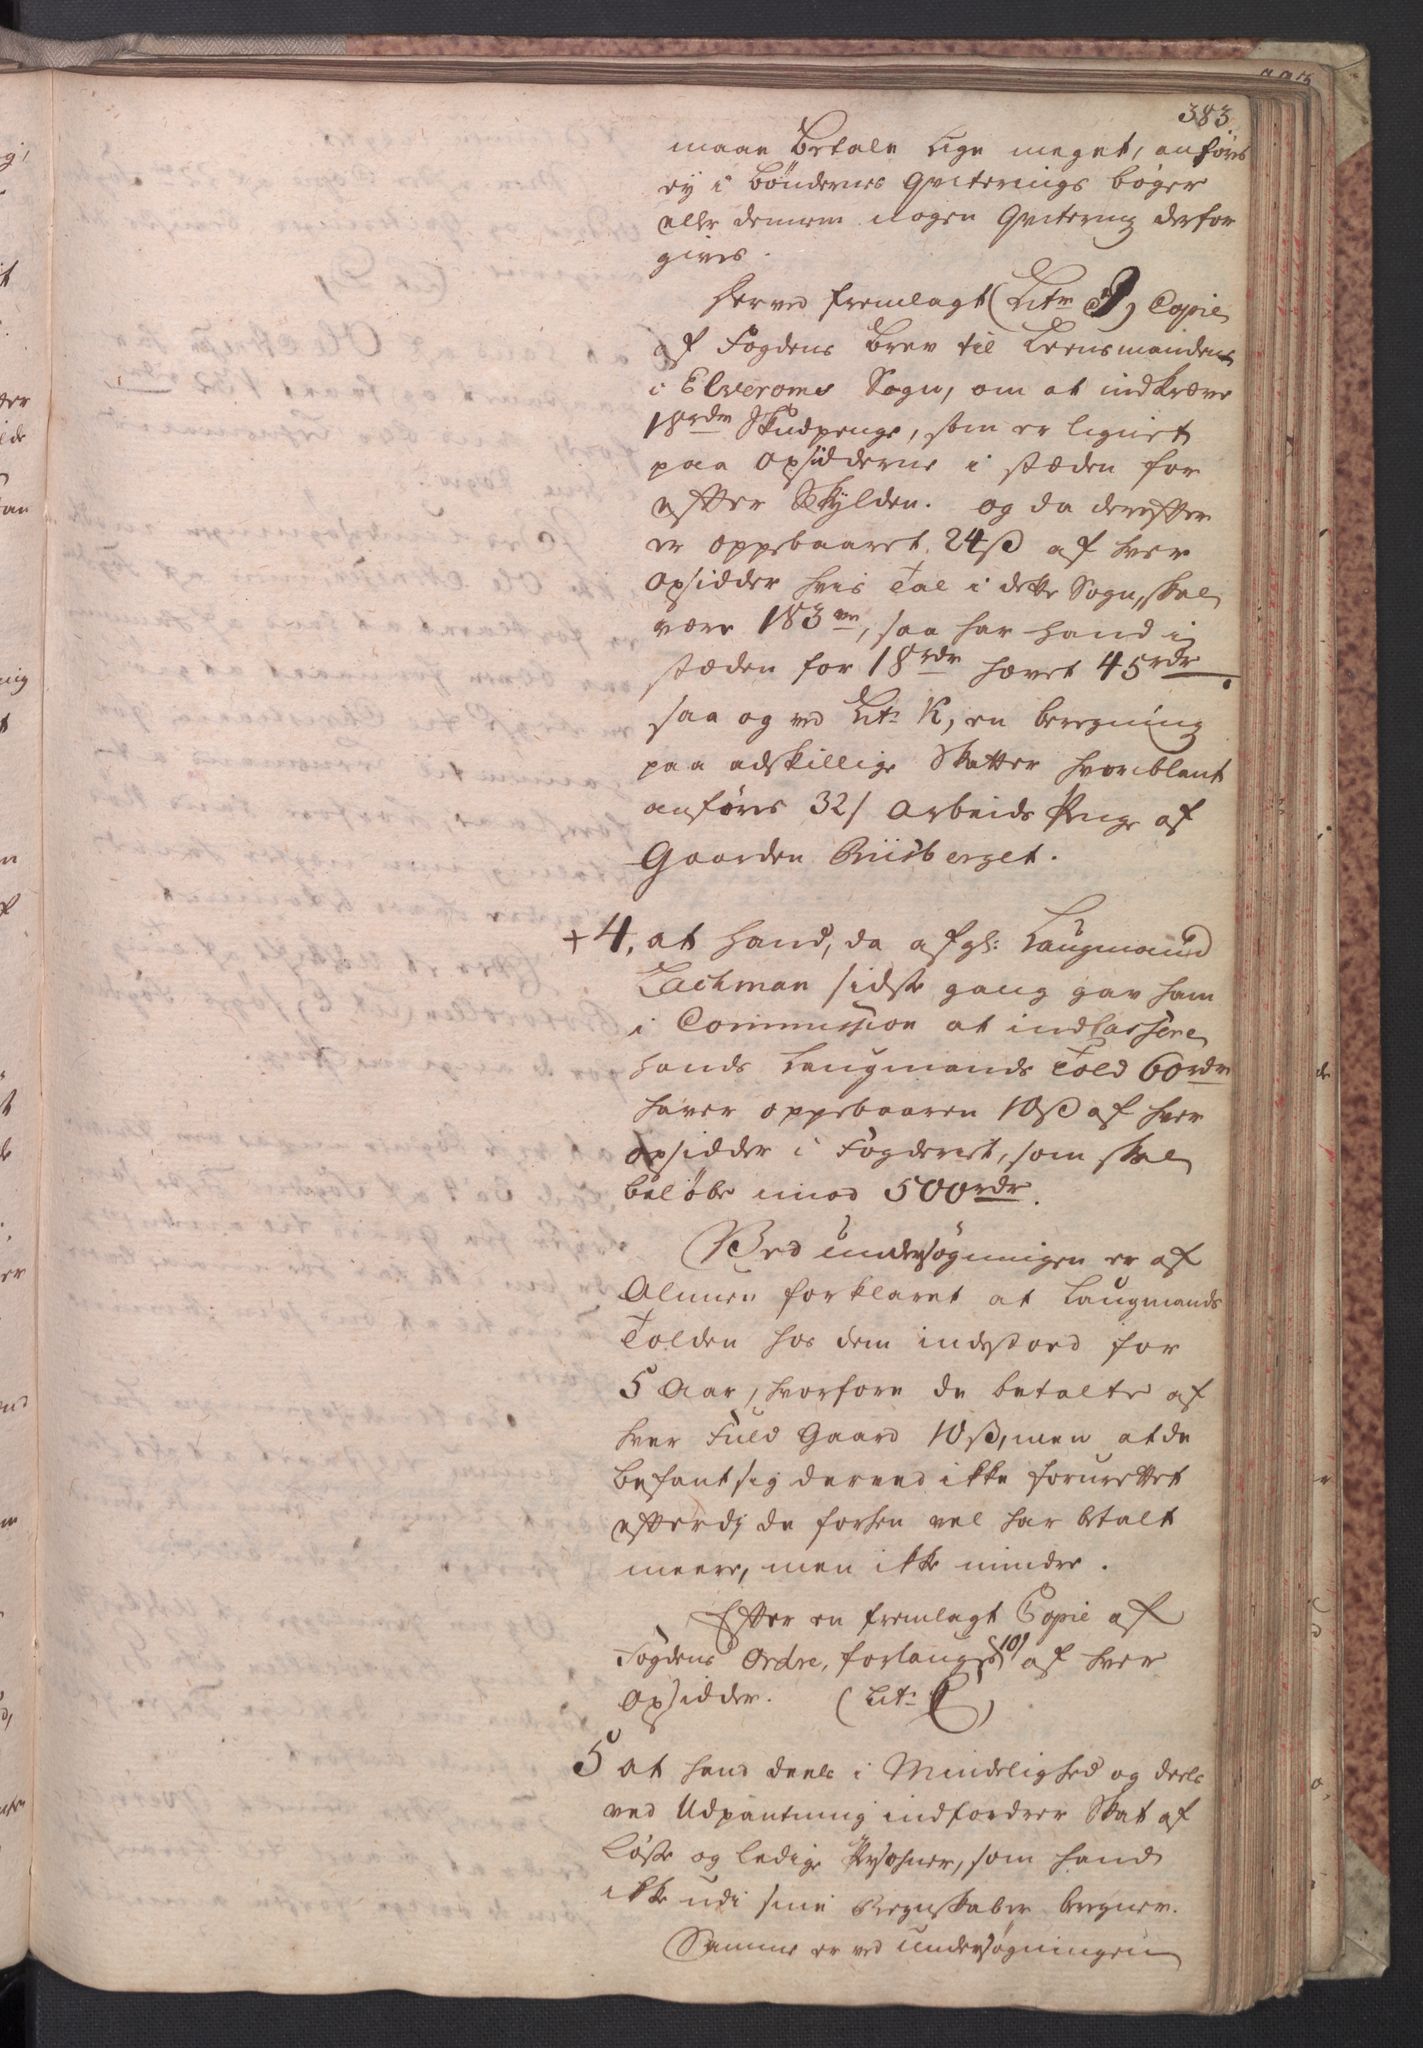 383
maae betale lige meget, anføres
ey i Bøndernes Qviterings bøger
eller dennem nogen Qvitering derfor
gives.
Herved fremlagt (Litr J) Copie
af Fogdens Brev til Leensmanden
i Elveroms Sogn, om at indkræve
18 rdr Skudpenge, som er lignet
paa Opsidderne i stæden for
efter Skylden. og da derefter
er oppebaaret 24 ß af hver
Opsidder hvis Tal i dette Sogn, skal
være 183 ve, saa har hand i
stæden for 18 rdr hævet 45 rdr.
saa og ved Litr K, en beregning
paa adskillige Skatter hvoriblant
anføres 32 / Arbeids Penge af
Gaarden Riisberget.
+ 4. at hand, da afgl: Laugmand
Lachman sidste gang gav ham
i Commission at indCassere
hands Laugmands Told 60 rdr
haver oppebaaren 10 ß af hver
Opsidder i Fogderiet, som skal
beløbe imod 500 rdr.
Ved undersøgningen er af
Almuen forklaret at Laugmands
Tolden hos dem indestoed for
5 Aar, hvorfore de betalte af
hver Fuld Gaard 10 ß, men at de
befant sig derved ikke forurettet
efterdj de forhen vel har betalt
meere, men ikke mindre.
Efter en fremlagt Copie af
Fogdens Ordre, forlanges 10 / af hver
Opsidder. (Litr L)
5 at hand deels i Mindelighed og deels
ved Udpantning indfordrer Skat af
Løse og ledige Persohner, som hand
ikke udi sine Regnskaber beregner.
Samme er ved undersøgningen